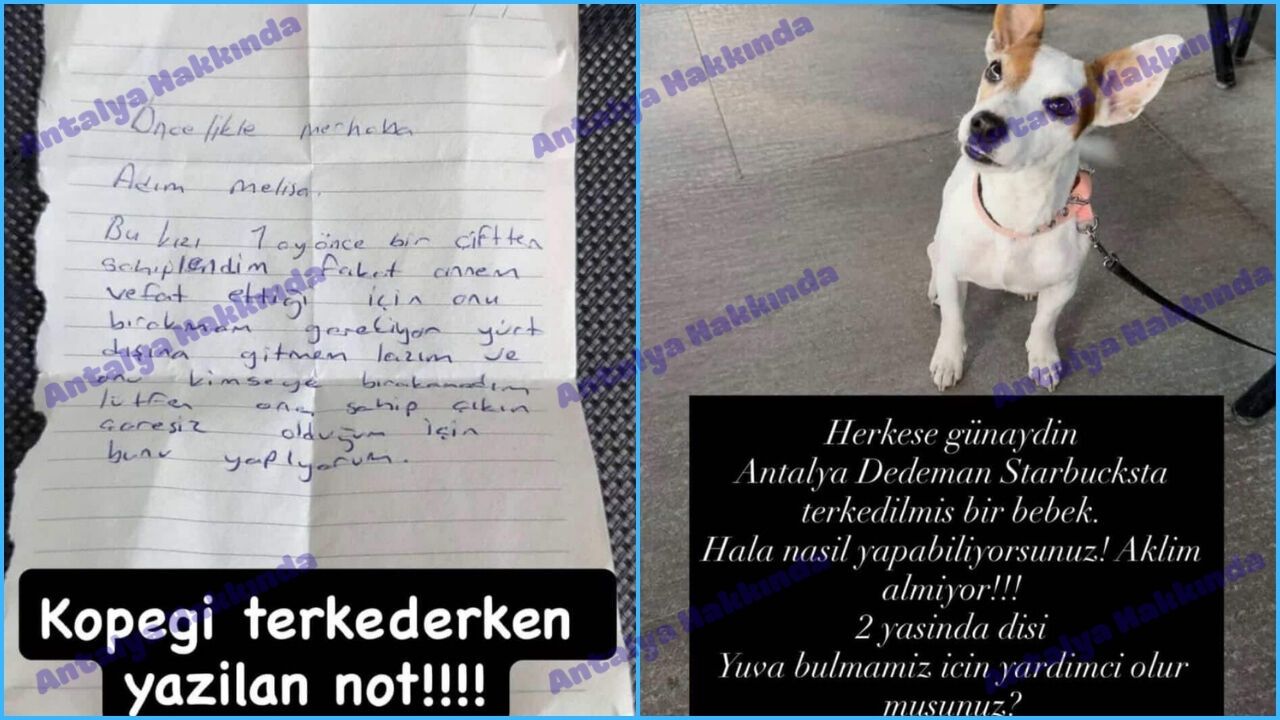 Öncelikle merhaba
Adım Melisa.
Bu kızı 1 ay önce bir çiftten
sahiplendim fakat annem
vefat ettiği için onu
bırakmam gerekiyor yurt
dışına gitmem lazım ve
onu kimseye bırakamadım
lütfen ona sahip çıkın
çaresiz olduğum için
bunu yapıyorum.
Kopegi terkederken
yazilan not!!!!
Herkese günaydin
Antalya Dedeman Starbucksta
terkedilmis bir bebek.
Hala nasil yapabiliyorsunuz! Aklim
almiyor!!!
2 yasinda disi
Yuva bulmamiz icin yardimci olur
musunuz?
Antalya Hakkında
Antalya Hakkında
Antalya Hakkında
Antalya Hakkında
Antalya Hakkında
Antalya Hakkında
Antalya Hakkında
Antalya Hakkında
Antalya Hakkında
Antalya Hakkında